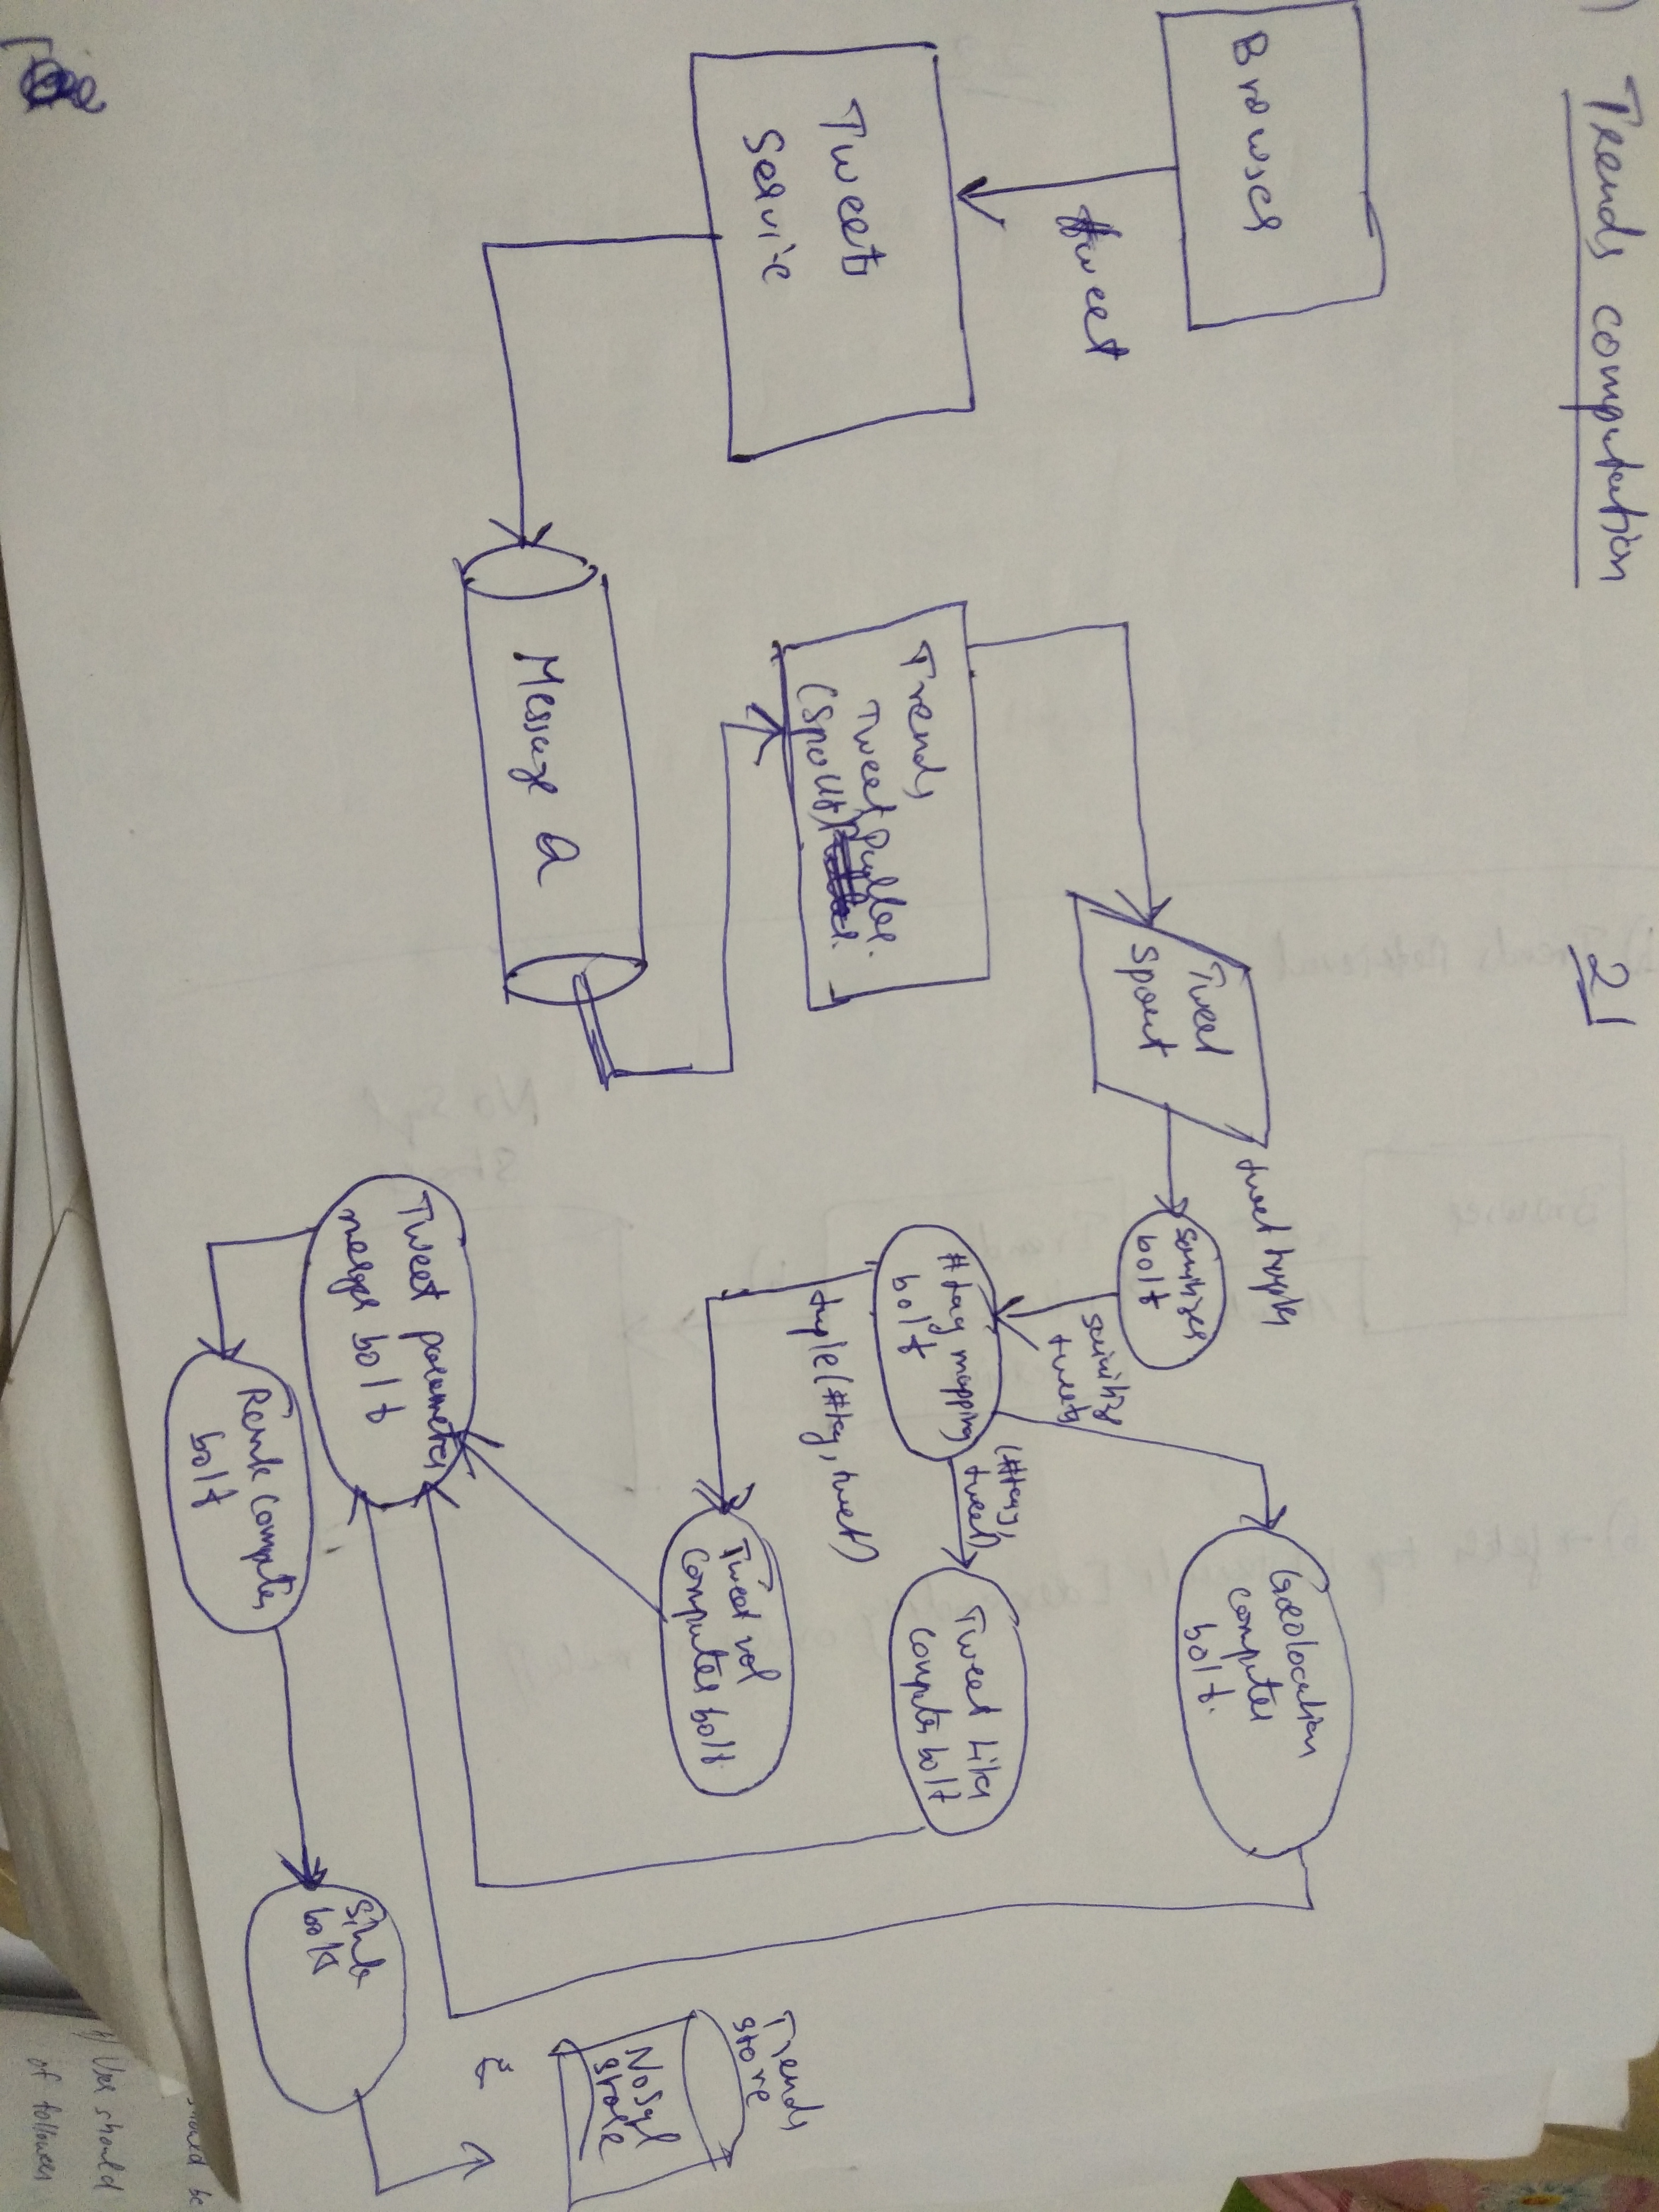 Trends computation
2
Browser
tweet
Tweets
Service
Message Q
Trends
Tweet Puller.
(Spout)
Tweet
Spout
tweet tuples
Sanitizer
bolt
tweets
#tag mapping
bolt
tuple (#tag, tweet)
(#tag,
tweet)
Geolocation
computer
bolt.
Tweet likes
computer bolt
Tweet vol
computer bolt.
Tweet parameter
merge bolt
Rank computer
bolt
Sink
bolt
Trends
store
NoSql
store
h) User should
of followers